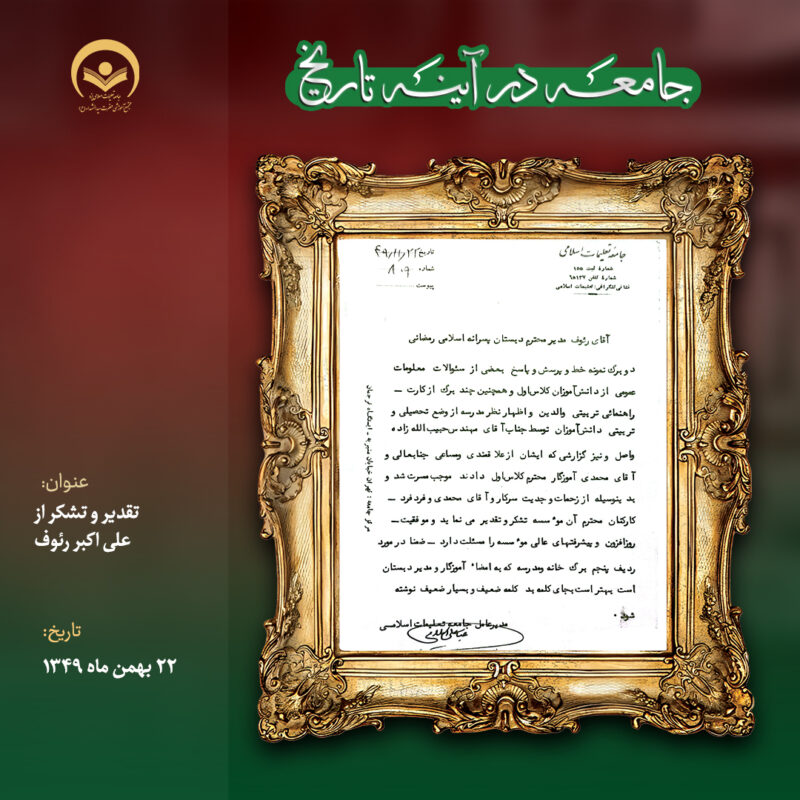 جامعه در آینه تاریخ
جامعه تعلیمات اسلامی
شمارهٔ ثبت ۱۵۵
شمارهٔ تلفن ۶۸۱۳۷
نشانی تلگرافی: تعلیمات اسلامی
تاریخ ۴۹/۱۱/۲۲
شماره ۸۰۹
پیوست
آقای رئوف مدیر محترم دبستان پسرانه اسلامی رمضانی
دو برگ نمونه خط و پرسش و پاسخ بعضی از سئوالات معلومات
عمومی از دانش‌آموزان کلاس اول و همچنین چند برگ از کارت –
راهنمائی تربیتی والدین و اظهار نظر مدرسه از وضع تحصیلی و
تربیتی دانش‌آموزان توسط جناب آقای مهندس حبیب الله زاده
واصل و نیز گزارشی که ایشان از علاقمندی ومساعی جنابعالی و
آقای محمدی آموزگار محترم کلاس اول دادند موجب مسرت شد و
بدینوسیله از زحمات و جدیت سرکار و آقای محمدی و فرد فرد –
کارکنان محترم آن موٴسسه تشکر و تقدیر می نماید و موفقیت –
روزافزون و پیشرفتهای عالی موٴسسه را مسئلت دارد – ضمنا در مورد
ردیف پنجم برگ خانه ومدرسه که به امضاء آموزگار و مدیر دبستان
است بهتر است بجای کلمه بد کلمه ضعیف و بسیار ضعیف نوشته
شود .
مدیرعامل جامعه تعلیمات اسلامی
مرکز جامعه : تهران خیابان
عنوان:
تقدیر و تشکر از
علی اکبر رئوف
تاریخ:
۲۲ بهمن ماه ۱۳۴۹